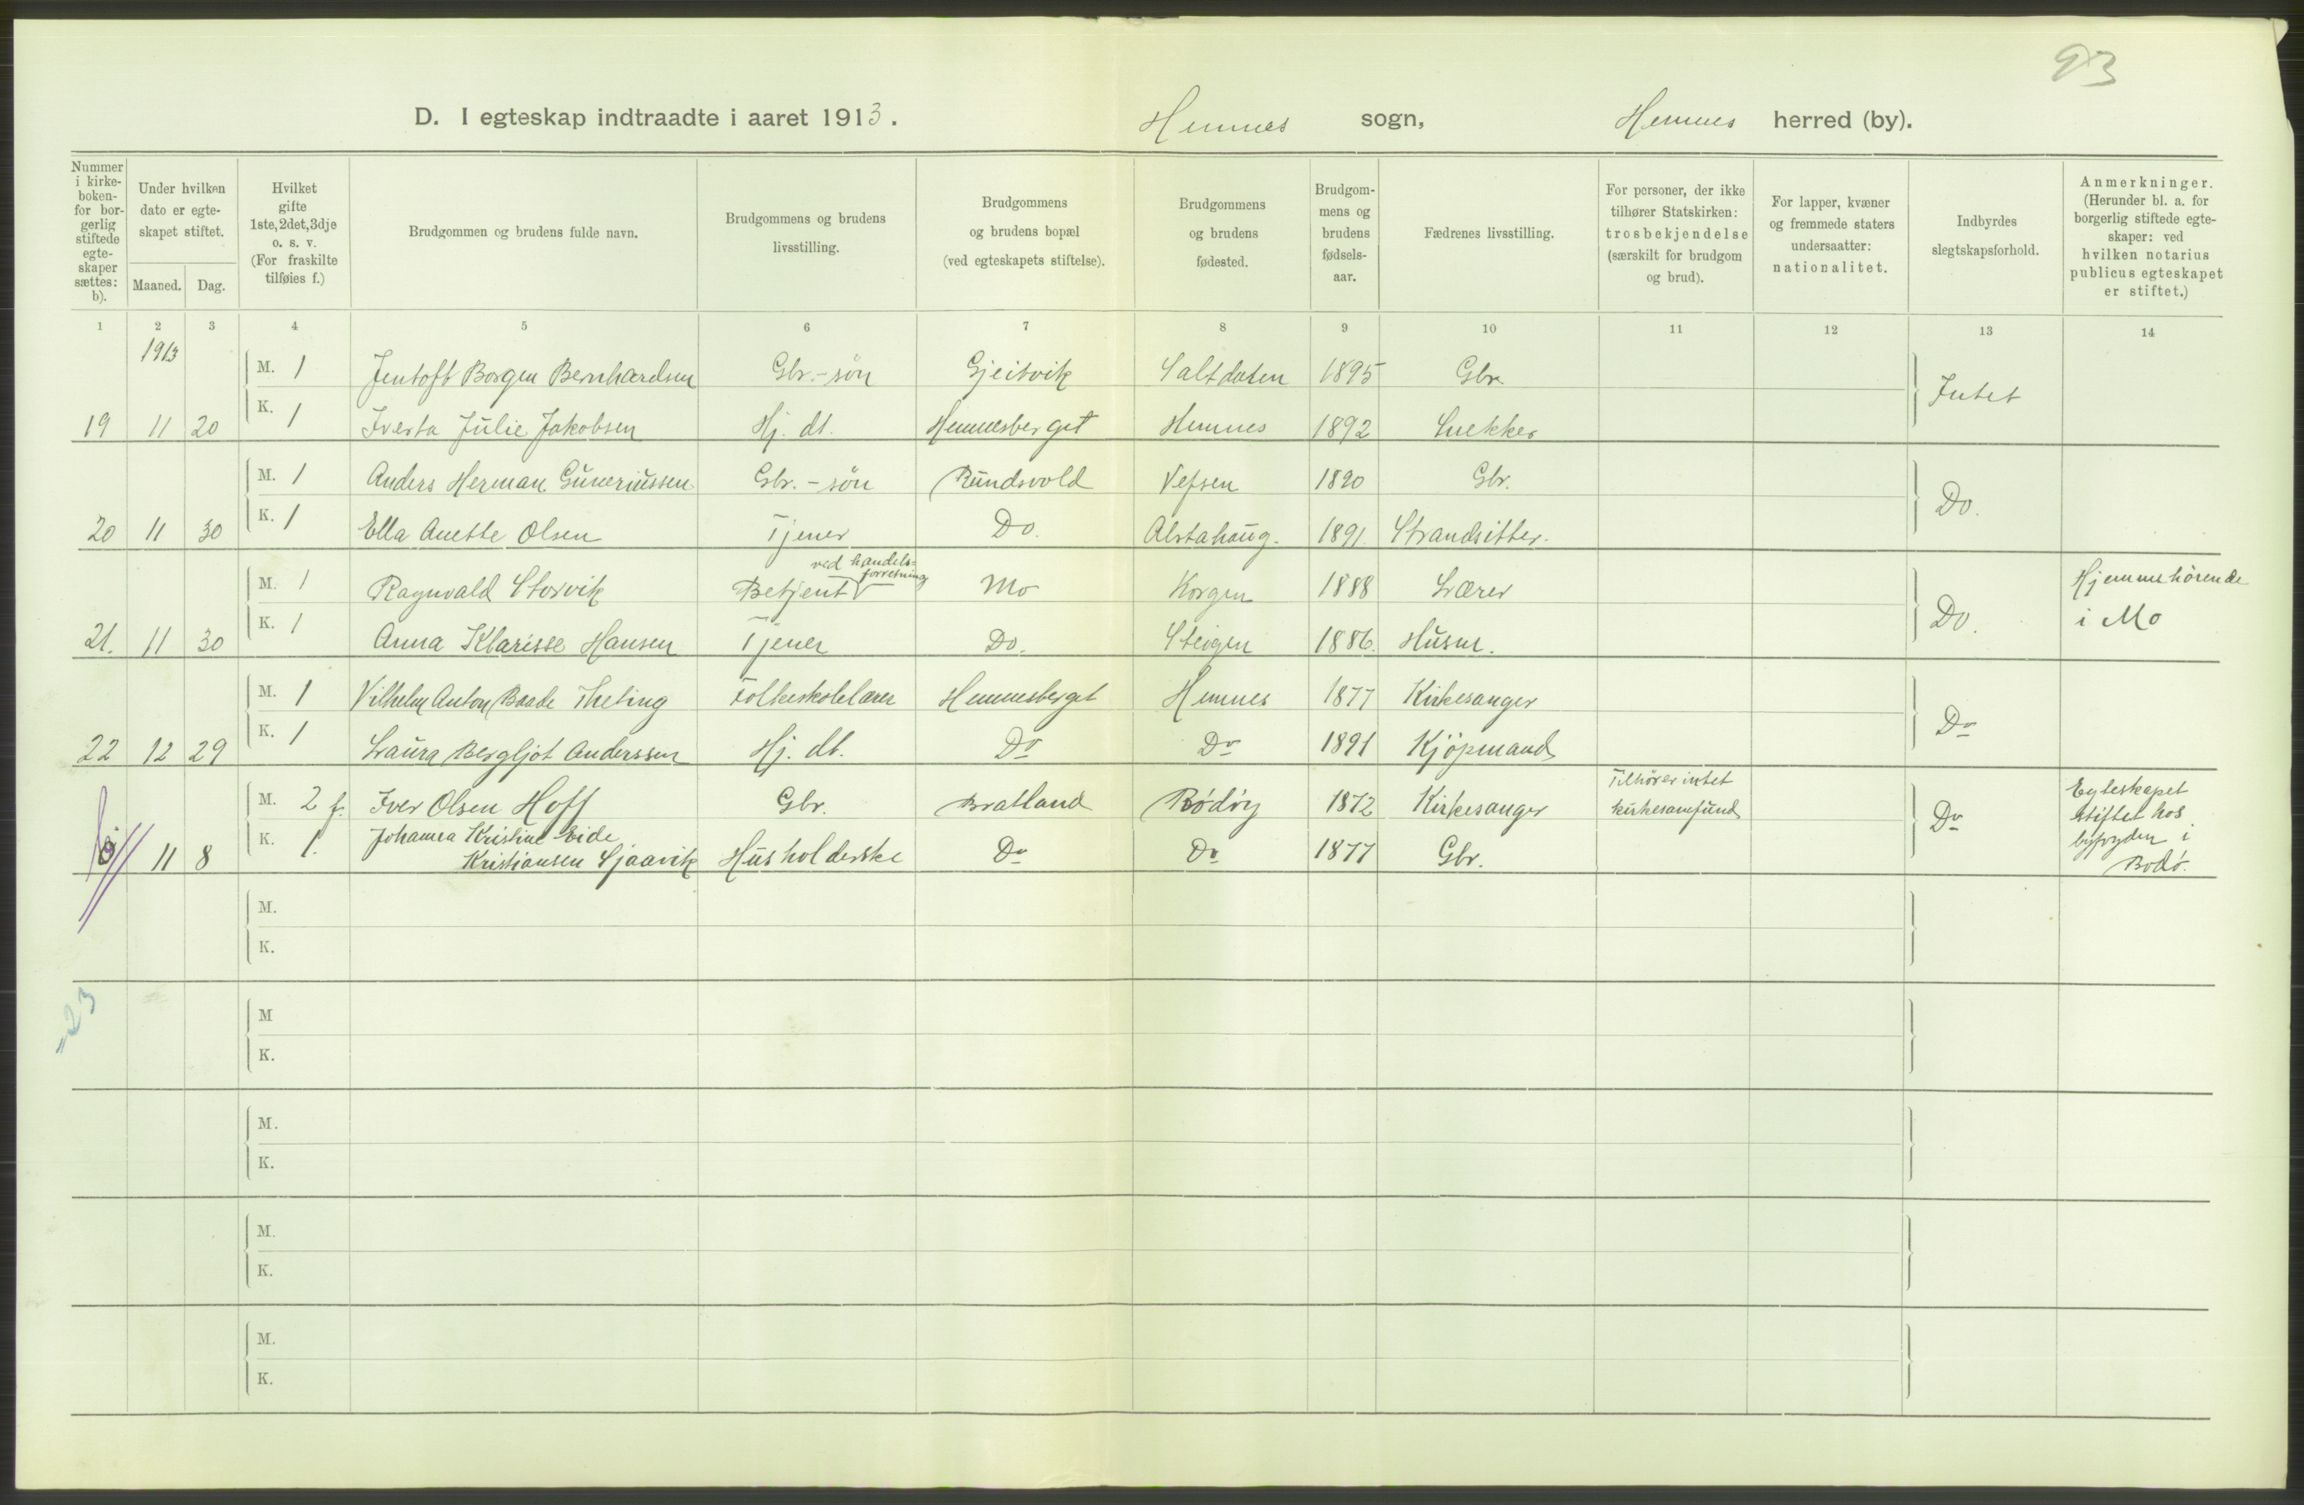 93
D. I egteskap indtraadte i aaret 1913. Hemnes sogn, Hemnes herred (by).
Nummer i kirke-boken- for bor-gerlig stiftede egte-skaper sættes: b).
Under hvilken dato er egte-skapet stiftet.
Maaned. Dag.
Hvilket gifte 1ste, 2det, 3dje o. s. v. (For fraskilte tilføies f.)
Brudgommen og brudens fulde navn.
Brudgommens og brudens livsstilling.
Brudgommens og brudens bopæl (ved egteskapets stiftelse).
Brudgommens og brudens fødested.
Brudgom-mens og brudens fødsels-aar.
Fædrenes livsstilling.
For personer, der ikke tilhører Statskirken: trosbekjendelse (særskilt for brudgom og brud).
For lapper, kvæner og fremmede staters undersaatter: nationalitet.
Indbyrdes slegtskapsforhold.
Anmerkninger. (Herunder bl. a. for borgerlig stiftede egte-skaper: ved hvilken notarius publicus egteskapet er stiftet.)
1 2 3 4 5 6 7 8 9 10 11 12 13 14
1913
M. 1 Jentoft Borgen Bernhardsen Gbr.-søn Gjeitvik Saltdalen 1895 Gbr. Intet
19 11 20 K. 1 Iverta Julie Jakobsen Hj. dt. Hemnesberget Hemnes 1892 Snekker
M. 1 Anders Herman Guneriussen Gbr.-søn Rundsvold Vefsen 1890 Gbr. Do.
20 11 30 K. 1 Ella Anette Olsen Tjener Do. Alstahoug. 1891. Strandsitter.
M. 1 Ragnvald Storvik Betjent ved handels-forretning Mo Korgen 1888 Lærer Do. Hjemmehörende i Mo
21. 11 30 K. 1 Anna Klarisse Hansen Tjener Do. Steigen 1886. Husm.
M. 1 Vilhelm Anton Baade Meling Folkeskolelærer Hemnesberget Hemnes 1877 Kirkesanger Do
22 12 29 K. 1 Laura Bergljot Anderssen Hj. dt. Do Do 1891 Kjöpmand
M. 2 f. Iver Olsen Hoff Gbr. Bratland Rödöy 1872 Kirkesanger Tilhörer intet kirkesamfund Do Egteskapet stiftet hos byfogden i Bodö.
11 8 K. 1. Johanna Kristine Eide Kristiansen Sjaavik Husholderske Do Do 1877 Gbr.
M.
K.
= 23
M
K.
M.
K.
M.
K.
M.
K.